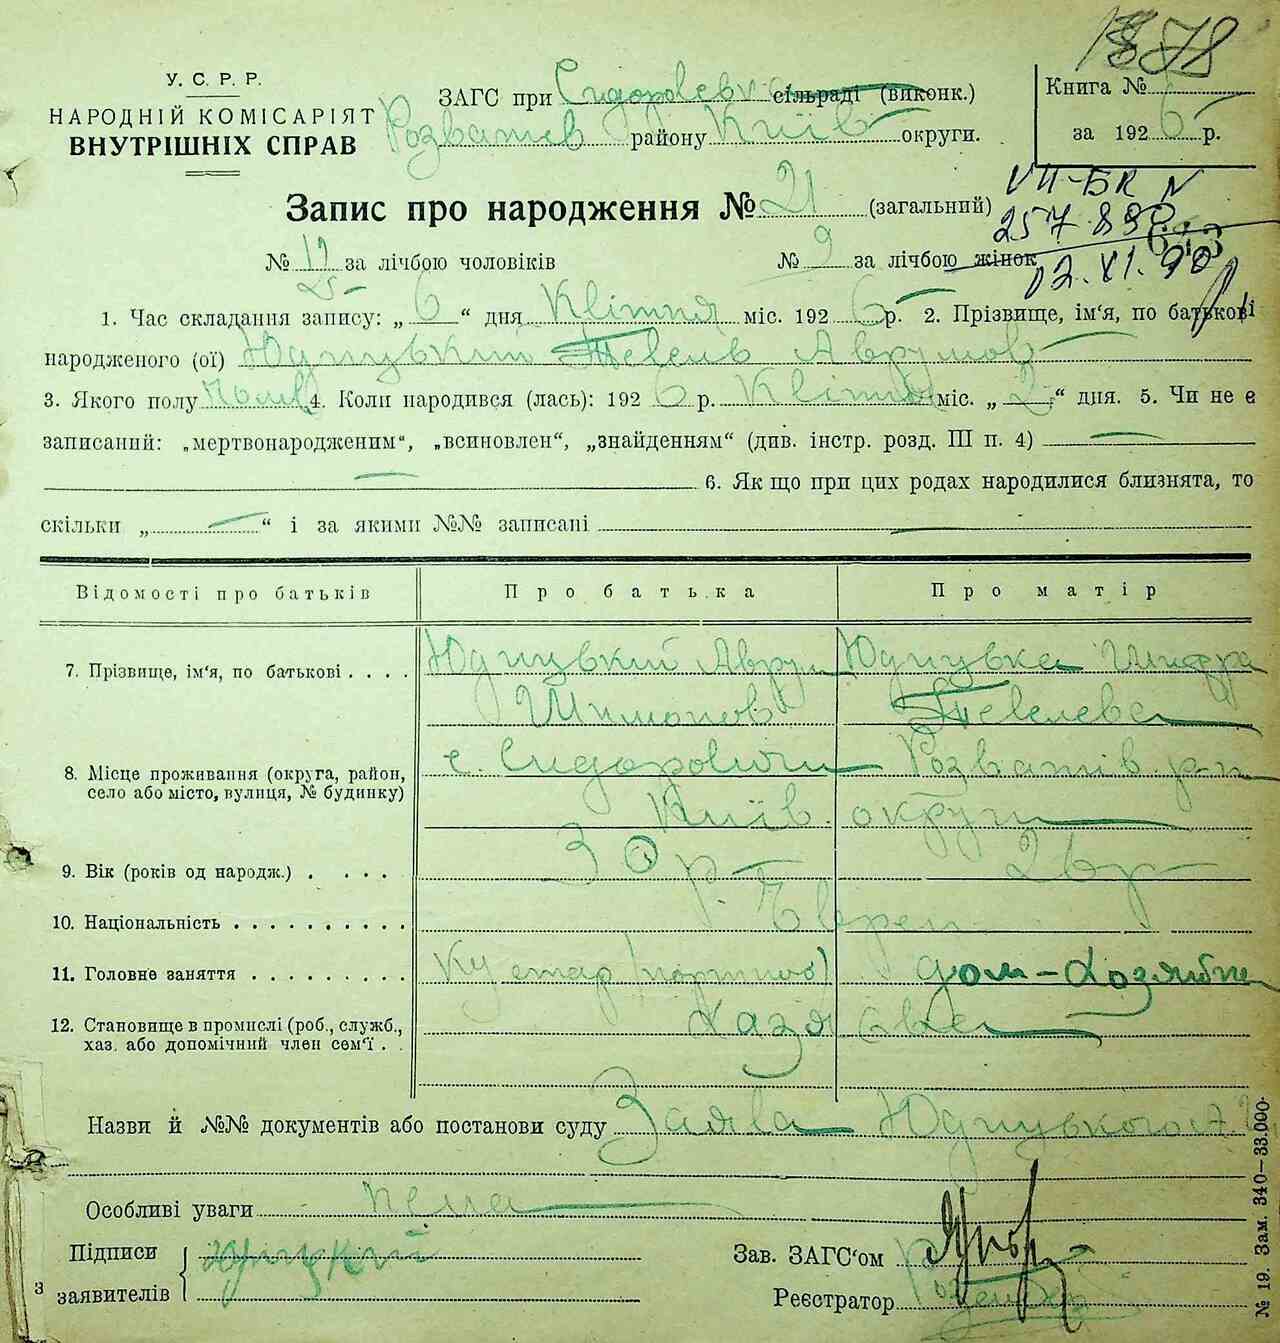 У. С. Р. Р.
НАРОДНІЙ КОМІСАРІЯТ
ВНУТРІШНІХ СПРАВ
ЗАГС при сільраді (виконк.)
Розватів району Київ округи.
Книга №
за 1926 р.
Запис про народження № 21 (загальний)
VII-БК N
257 890
12.XI.90
№ 12 за лічбою чоловіків № 9 за лічбою жінок
1. Час складання запису: „ 6 “ дня Квітня міс. 1926 р. 2. Прізвище, ім‘я, по батькові
народженого (ої) Тевель Аврумов
3. Якого полу 4. Коли народився (лась): 1926 р. Квітня міс. „ 2 “ дня. 5. Чи не є
записаний: „мертвонародженим“, „всиновлен“, „знайденням“ (див. інстр. розд. III п. 4)
6. Як що при цих родах народилися близнята, то
скільки „ “ і за якими №№ записані
Відомості про батьків Про батька Про матір
7. Прізвище, ім‘я, по батькові Юдицький Аврум Юдицька Шифра
Шимонов Тевелева
8. Місце проживання (округа, район, село або місто, вулиця, № будинку) с. Сидоровичи Розватів. р-н
Київ. округи
9. Вік (років од народж.) 30 р 26 р
10. Національність Євреи
11. Головне заняття Кустар дом-хозяйка
12. Становище в промислі (роб., служб.,
хаз. або допомічний член сем‘ї
Назви й №№ документів або постанови суду Заява Юдицького А
Особливі уваги нема
Підписи
заявителів
Зав. ЗАГС‘ом
Реєстратор
З
№ 19. Зам. 340—33.000.